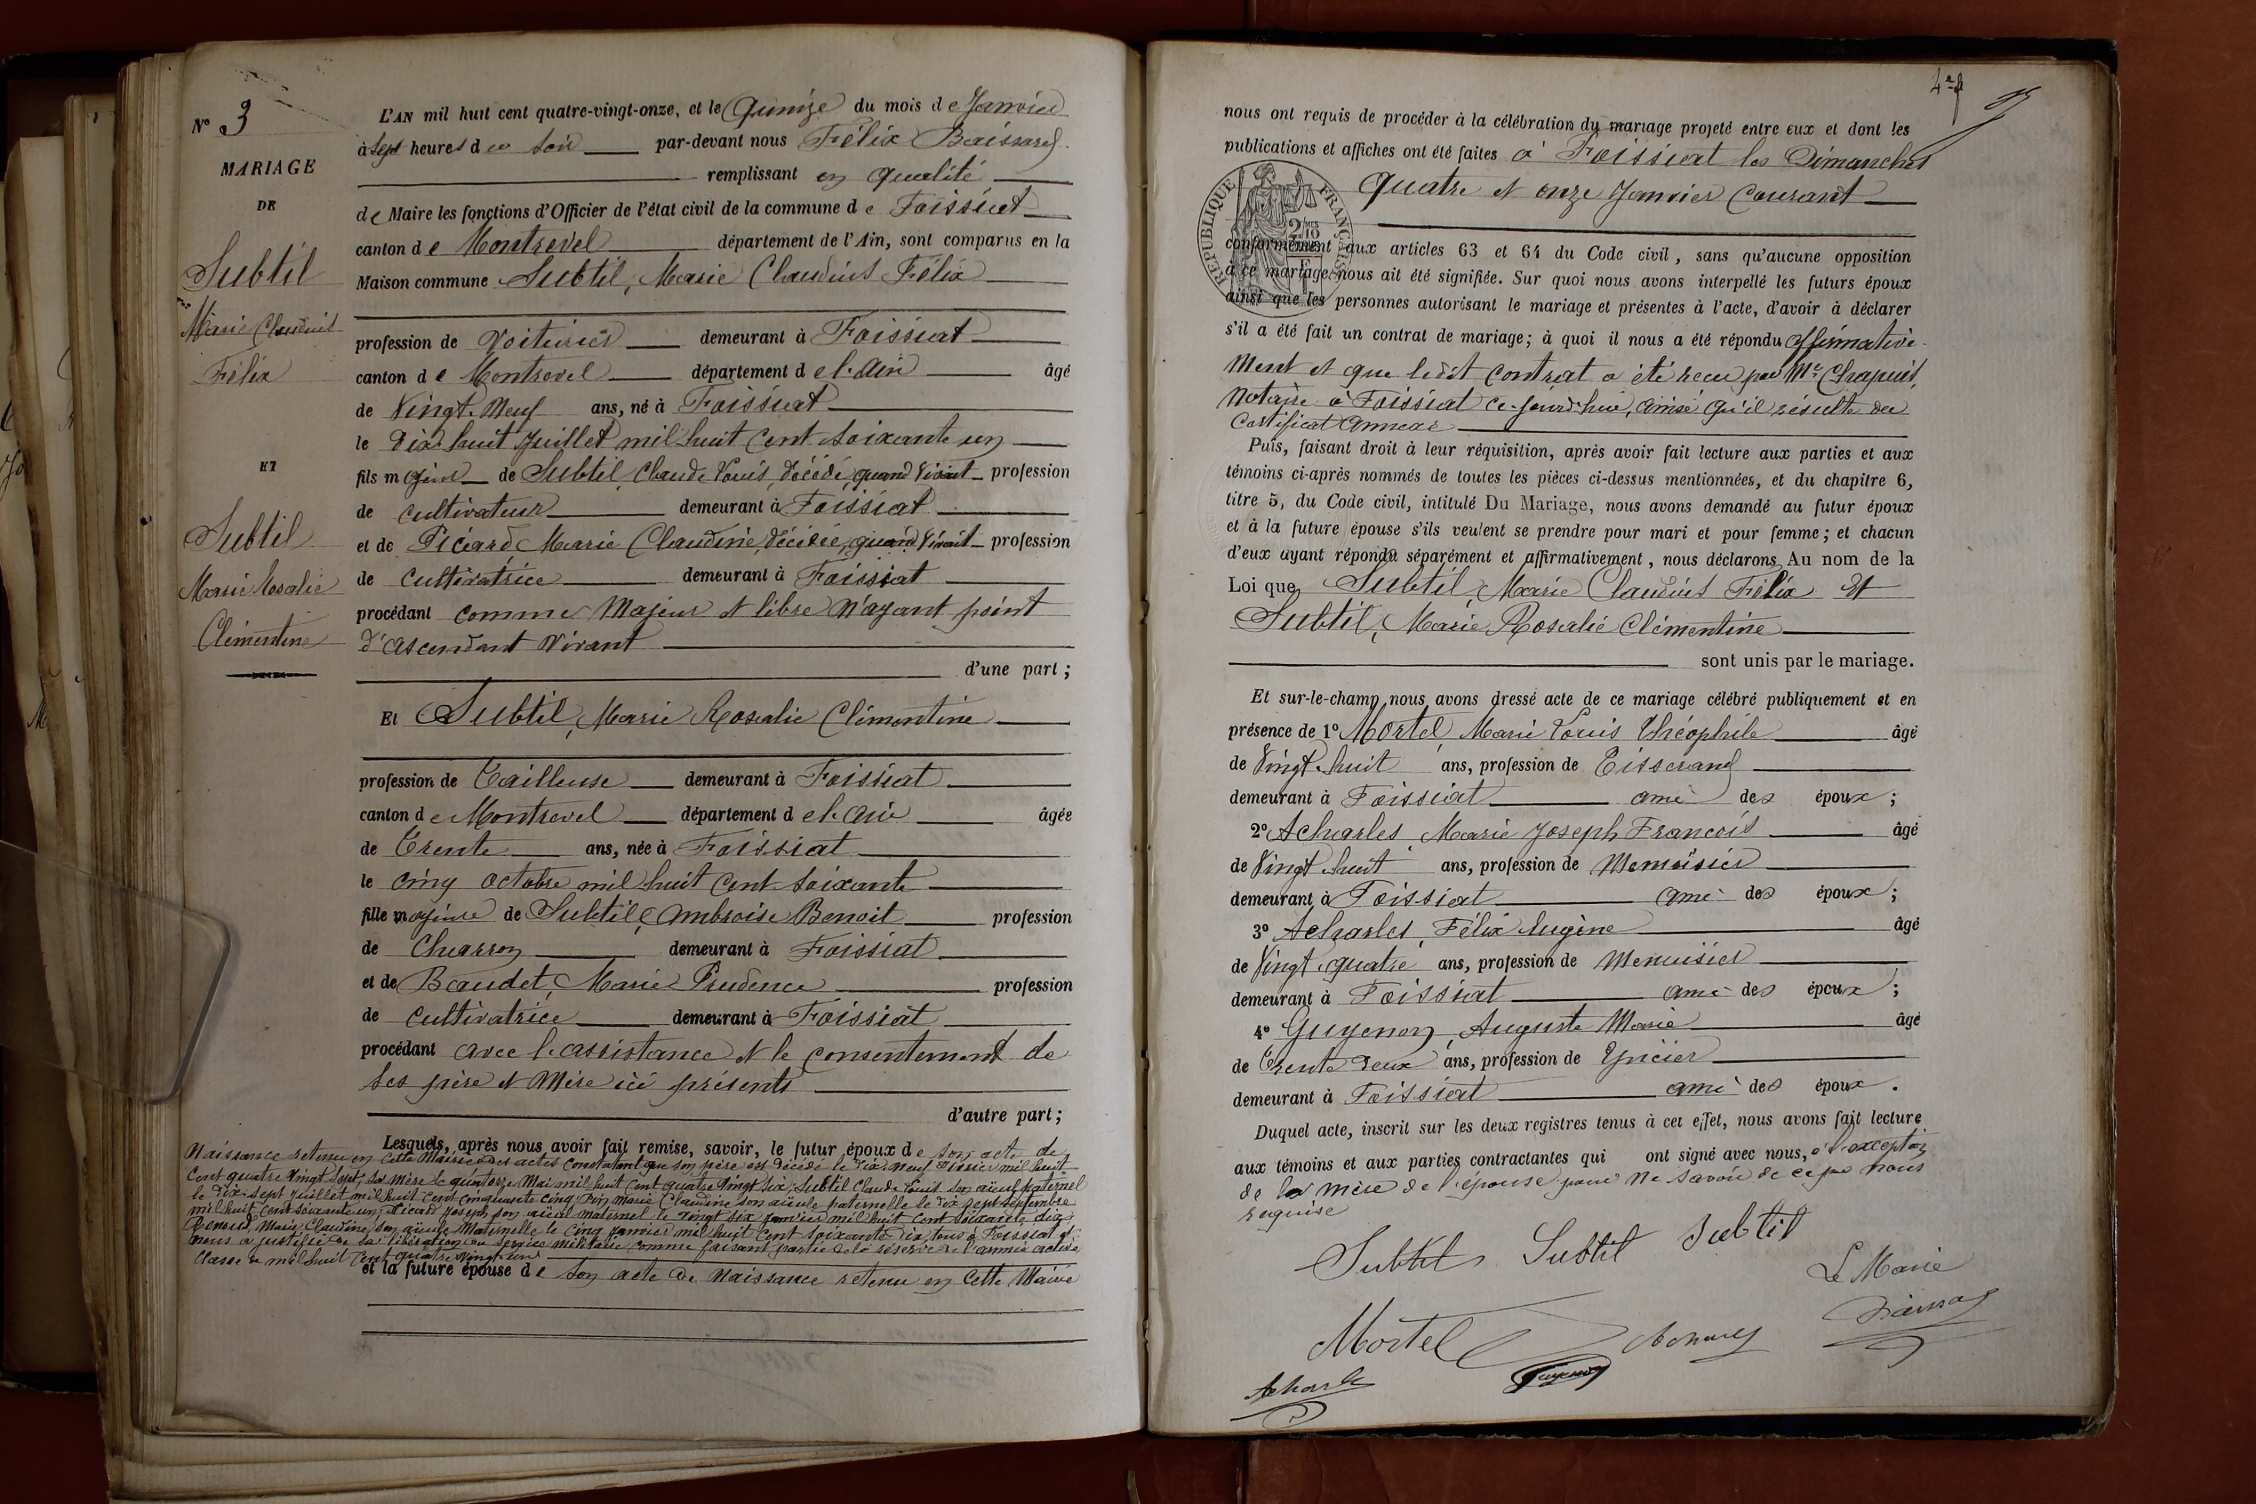 N° 3
MARIAGE
DE
Subtil
Marie Claudius
Félix
ET
Subtil
Marie Rosalie
Clémentine
L'AN mil huit cent quatre-vingt-onze, et le Quinze du mois de Janvier
à Sept heures du soir par-devant nous Félix
remplissant en qualité
de Maire les fonctions d'Officier de l'état civil de la commune de Foissiat
canton de Montrevel département de l'Ain, sont comparus en la
Maison commune Subtil, Marie Claudius Félix
profession de Voiturier demeurant à Foissiat
canton de Montrevel département de l'Ain âgé
de Vingt-Neuf ans, né à Foissiat
le Dix huit Juillet mil huit Cent soixante un
fils majeur de Subtil, Claude Louis, Décédé, quand Vivait profession
de cultivateur demeurant à Foissiat
et de Picard, Marie Claudine, décédée, quand Vivait profession
de Cultivatrice demeurant à Foissiat
procédant comme Majeur et libre N'ayant point
d'ascendant Vivant
d'une part ;
Et Subtil, Marie Rosalie Clémentine
profession de Tailleuse demeurant à Foissiat
canton de Montrevel département de l'Ain âgée
de Trente ans, née à Foissiat
le cinq octobre mil huit Cent soixante
fille majeure de Subtil, Ambroise Benoit profession
de Charron demeurant à Foissiat
et de Beaudet, Marie Prudence profession
de Cultivatrice demeurant à Foissiat
procédant avec l'assistance et le consentement de
Ses père et Mère ici présents
d'autre part ;
Lesquels, après nous avoir fait remise, savoir, le futur époux de son acte de
Naissance retenu en cette Mairie des actes constatant que son père est décédé le dix neuf Février mil huit
Cent quatre Vingt Sept, sa Mère le quatorze Mai mil huit Cent quatre Vingt Six, Subtil Claude Louis son aïeul paternel
le dix sept Juillet mil huit Cent cinquante cinq, Marie Claudine son aïeule paternelle le dix sept septembre
mil huit Cent soixante un, Picard Joseph son aïeul maternel le Vingt six Janvier mil huit Cent soixante dix
Renoud, Marie Claudine son aïeule Maternelle le Cinq Janvier mil huit Cent soixante dix, tous à Foissiat et
nous a justifié de sa libération du service militaire comme faisant partie de la réserve de l'armée active
Classe de mil huit Cent quatre Vingt un
et la future épouse de son acte de Naissance retenu en Cette Mairie
nous ont requis de procéder à la célébration du mariage projeté entre eux et dont les
publications et affiches ont été faites à Foissiat les Dimanches
quatre et onze Janvier Courant
RÉPUBLIQUE FRANÇAISE
conformément aux articles 63 et 64 du Code civil, sans qu'aucune opposition
à ce mariage nous ait été signifiée. Sur quoi nous avons interpellé les futurs époux
ainsi que les personnes autorisant le mariage et présentes à l'acte, d'avoir à déclarer
s'il a été fait un contrat de mariage ; à quoi il nous a été répondu affirmative-
ment et que ledit Contrat a été recu par Me Chapuis
Notaire à Foissiat Ce-jourd'hui, ainsi qu'il résulte du
Certificat annexé
Puis, faisant droit à leur réquisition, après avoir fait lecture aux parties et aux
témoins ci-après nommés de toutes les pièces ci-dessus mentionnées, et du chapitre 6,
titre 5, du Code civil, intitulé Du Mariage, nous avons demandé au futur époux
et à la future épouse s'ils veulent se prendre pour mari et pour femme ; et chacun
d'eux ayant répondu séparément et affirmativement, nous déclarons Au nom de la
Loi que Subtil, Marie Claudius Félix Et
Subtil, Marie Rosalie Clémentine
sont unis par le mariage.
Et sur-le-champ nous avons dressé acte de ce mariage célébré publiquement et en
présence de 1° Mortel, Marie Louis Théophile âgé
de Vingt-huit ans, profession de Tisserand
demeurant à Foissiat ami des époux ;
2° Acharles, Marie Joseph Francois âgé
de Vingt huit ans, profession de Menuisier
demeurant à Foissiat ami des époux ;
3° Acharles, Félix Eugène âgé
de Vingt quatre ans, profession de Menuisier
demeurant à Foissiat ami des époux ;
4° Guyenon, Auguste Marie âgé
de Trente deux ans, profession de Epicier
demeurant à Foissiat ami des époux.
Duquel acte, inscrit sur les deux registres tenus à cet effet, nous avons fait lecture
aux témoins et aux parties contractantes qui ont signé avec nous, à l'exception
de la Mère de l'épouse pour Ne savoir de ce par nous
requise
Subtil Subtil Subtil
Le Maire
Mortel